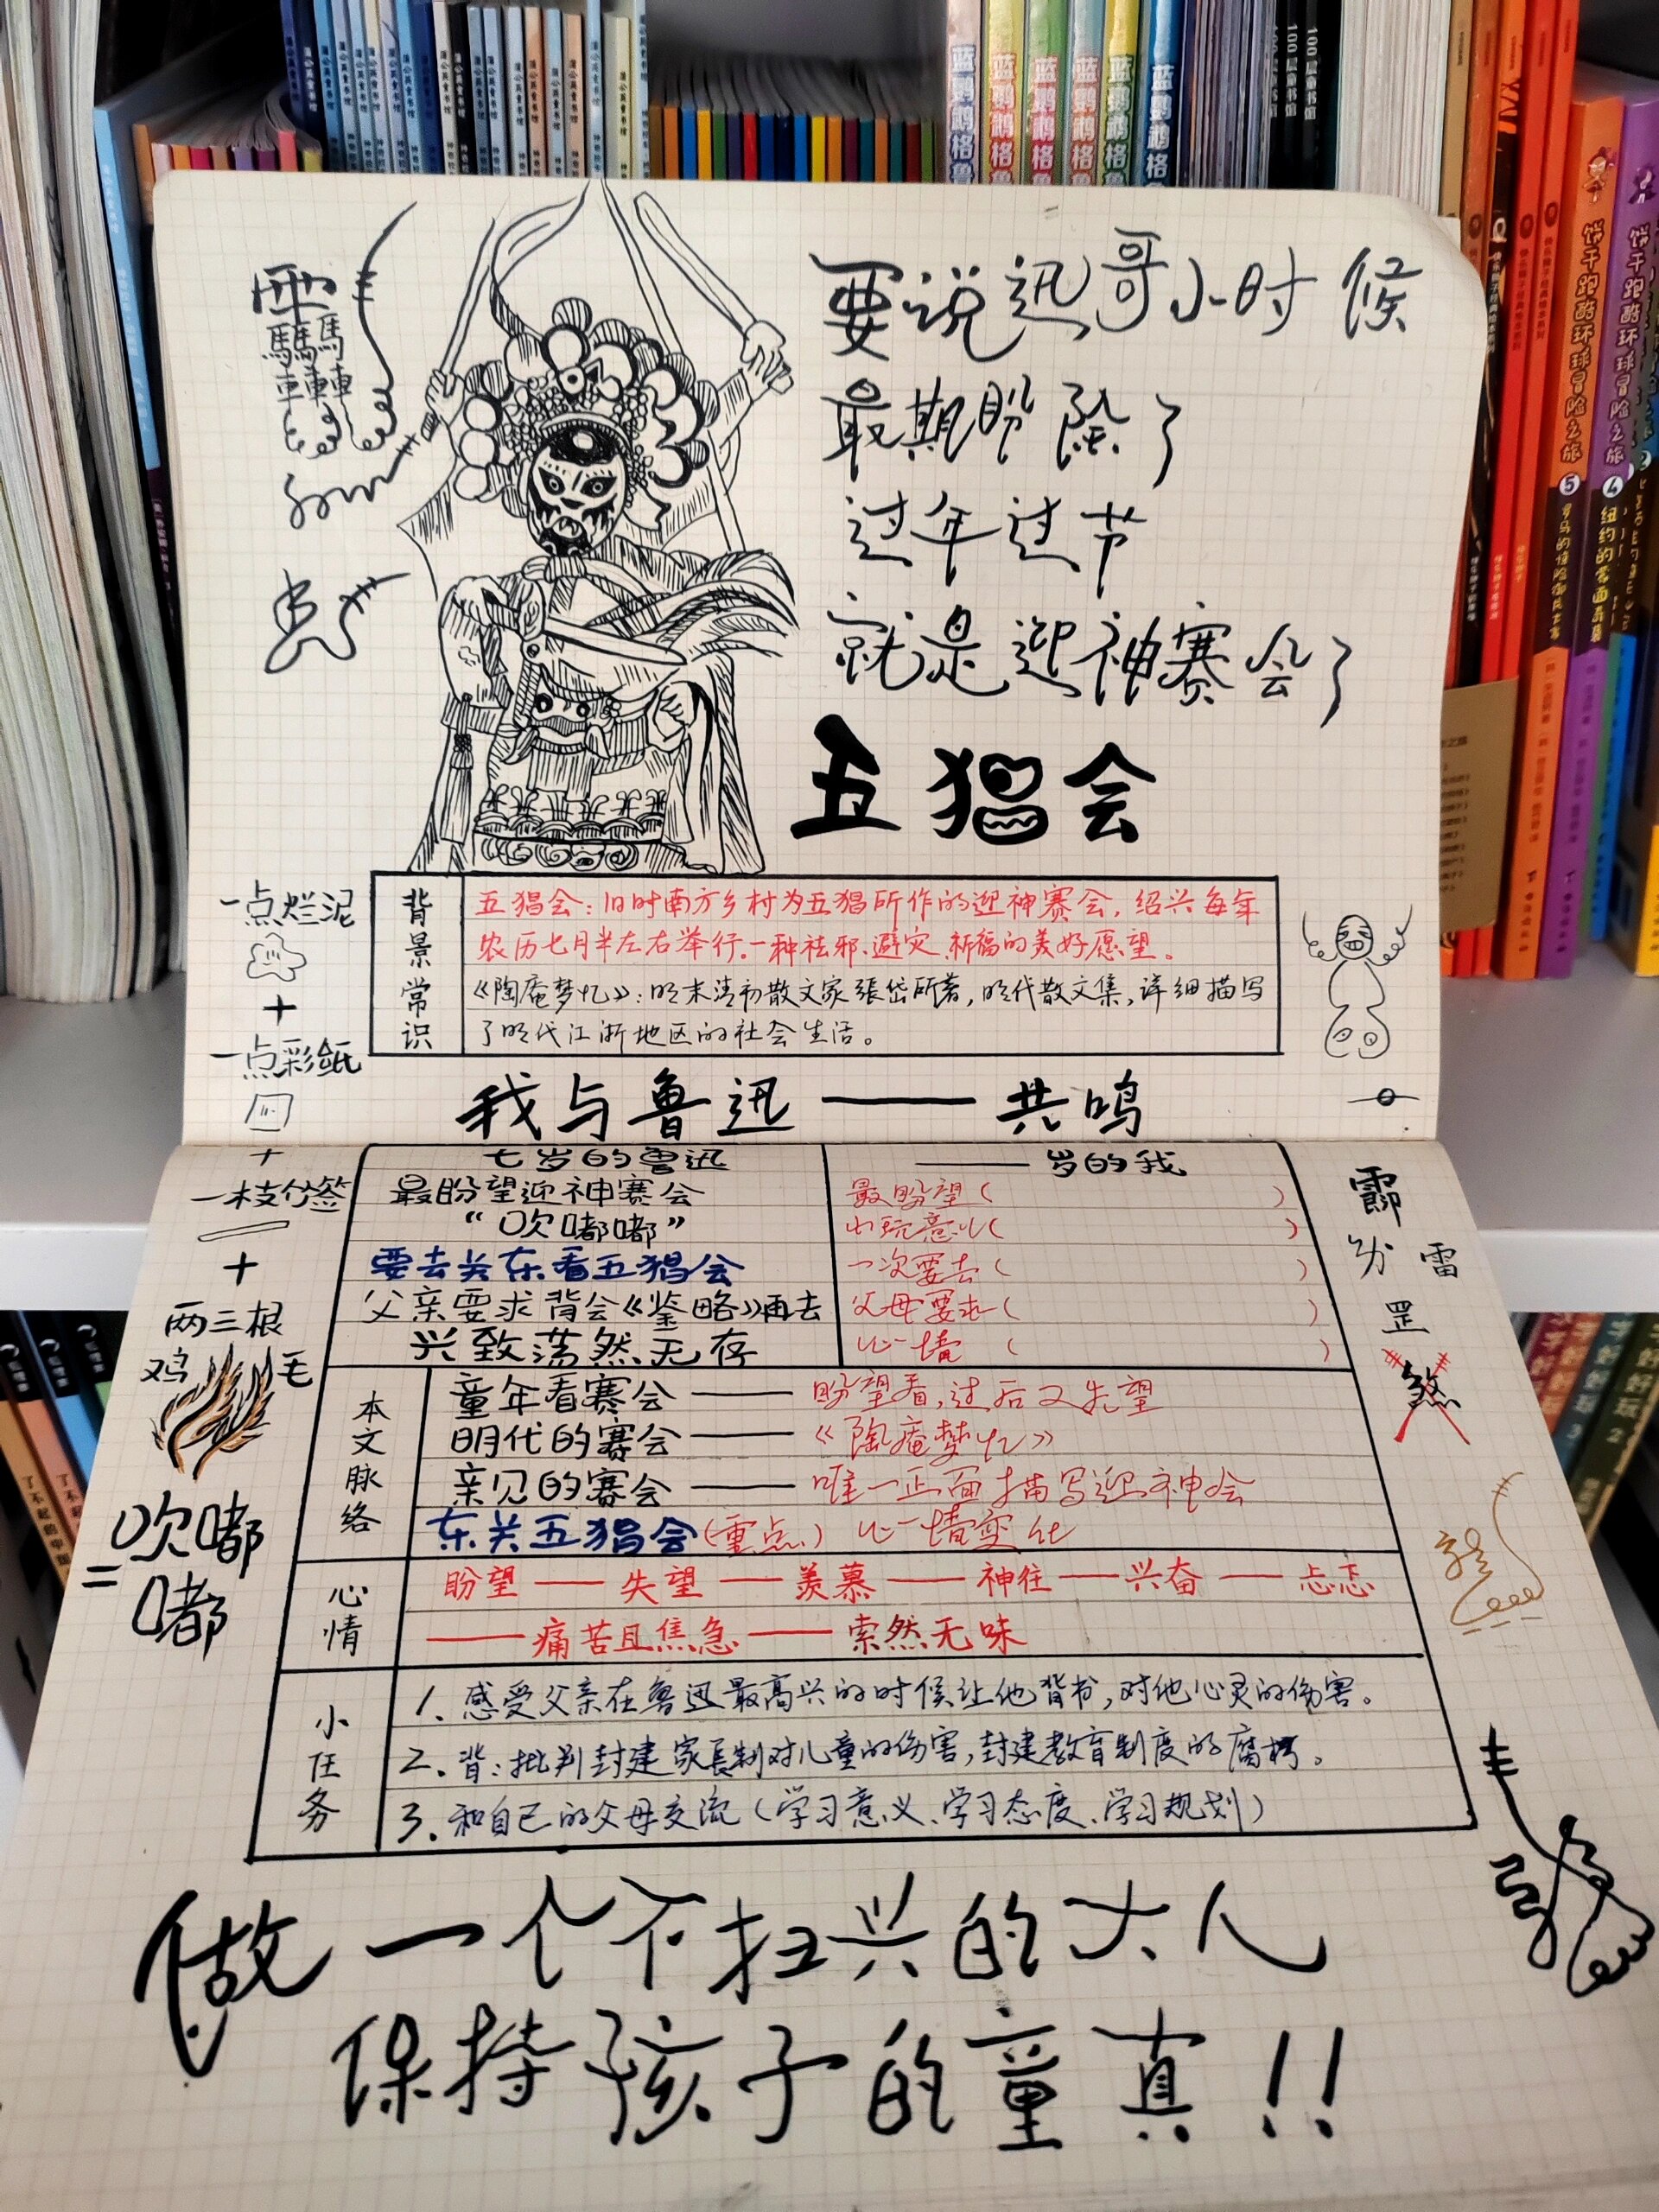 要说迅哥小时候
最期盼除了
过年过节
就是迎神赛会了
五猖会
背景常识
五猖会：旧时南方乡村为五猖所作的迎神赛会，绍兴每年
农历七月半左右举行。一种祛邪、避灾、祈福的美好愿望。
《陶庵梦忆》：明末清初散文家張岱所著，明代散文集，详细描写
了明代江浙地区的社会生活。
一点烂泥
+
一点彩纸
+
一枝竹签
+
两三根
鸡毛
=吹嘟
嘟
我与鲁迅——共鸣
七岁的鲁迅
最盼望迎神赛会
“吹嘟嘟”
要去关东看五猖会
父亲要求背会《鉴略》再去
兴致荡然无存
——岁的我
最盼望（ ）
小玩意儿（ ）
一次要去（ ）
父母要求（ ）
心情（ ）
本文脉络
童年看赛会——盼望看，过后又失望
明代的赛会——《陶庵梦忆》
亲见的赛会——唯一正面描写迎神会
东关五猖会（重点）心情变化
心情
盼望——失望——羡慕——神往——兴奋——忐忑
——痛苦且焦急——索然无味
小任务
1. 感受父亲在鲁迅最高兴的时候让他背书，对他心灵的伤害。
2. 背：批判封建家長制对儿童的伤害，封建教育制度的腐朽。
3. 和自己的父母交流（学习意义、学习态度、学习规划）
雷
罡
煞
做一个不扫兴的大人
保持孩子的童真！！
蓝鹦鹉格鲁
蓝鹦鹉格鲁
蓝鹦鹉格鲁
蓝鹦鹉格鲁
蓝鹦鹉格鲁
蓝鹦鹉格鲁
100层童书馆
100层童书馆
饼干跑酷环球冒险之旅
5
饼干跑酷环球冒险之旅
4